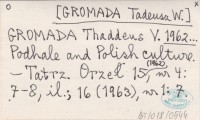 [GROMADA Tadeusz W.]
GROMADA Thaddeus V. 1962...
Podhale and Polish culture.
– Tatrz. Orzeł 15, (1962) nr 4:
7-8, il.; 16 (1963), nr 1: 7.